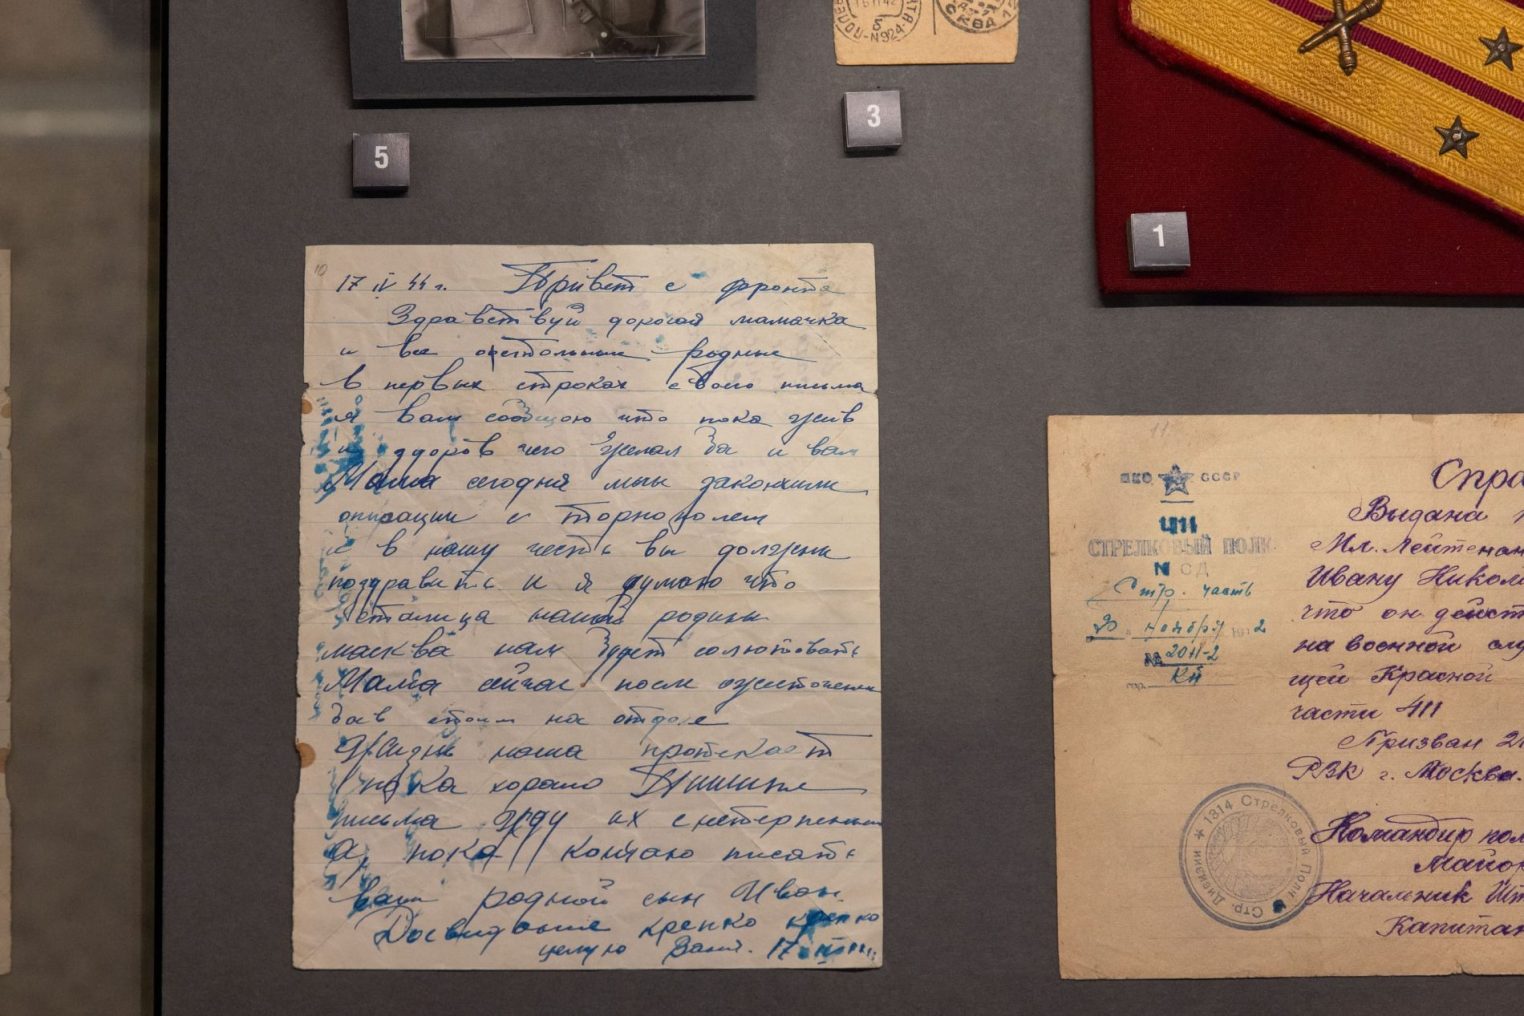 15 II 42
N924
МОСКВА
5
3
1
10
17 IV 44 г. Привет с фронта
Здравствуй дорогая мамачка
и все остольные родные
В первых строках своего письма
я вам сообщою что пока жив
и здоров чего желал ба и вам
Мама сегодня мы закончили
опирации с торнополем
и в нашу честь вы должны
поздравить и я думаю что
сталица нашей родины
масква нам будет солютовать
Мама сичас посли ожисточенных
боев стоим на отдахе
Жизнь наша протекает
пока хорошо Пишите
письма жду их с нетерпеньем
А пока кончаю писать
ваш родной сын Иван.
Досвидание крепко крепко
целую Ваня. 17
11
НКО СССР
411
СТРЕЛКОВЫЙ ПОЛК
СД
Стр. часть
ноября 1942
№ 2011-2
Спра
Выдана
Мл. Лейтенан
Ивану Никола
что он дейст
на военной слу
щей Красной
части 411
Призван 2
РВК г. Москва.
Командир пол
Майор
Начальник Шт
Капитан
★ 1314 Стрелковый Полк ★ Стр. Дивизии